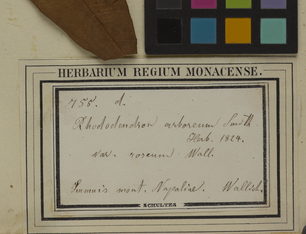 HERBARIUM REGIUM MONACENSE.
758. d.
Rhododendron arboreum Smith
Herb. 1824.
var. roseum Wall.
mont. Napaliae. Wallich.
SCHULTES